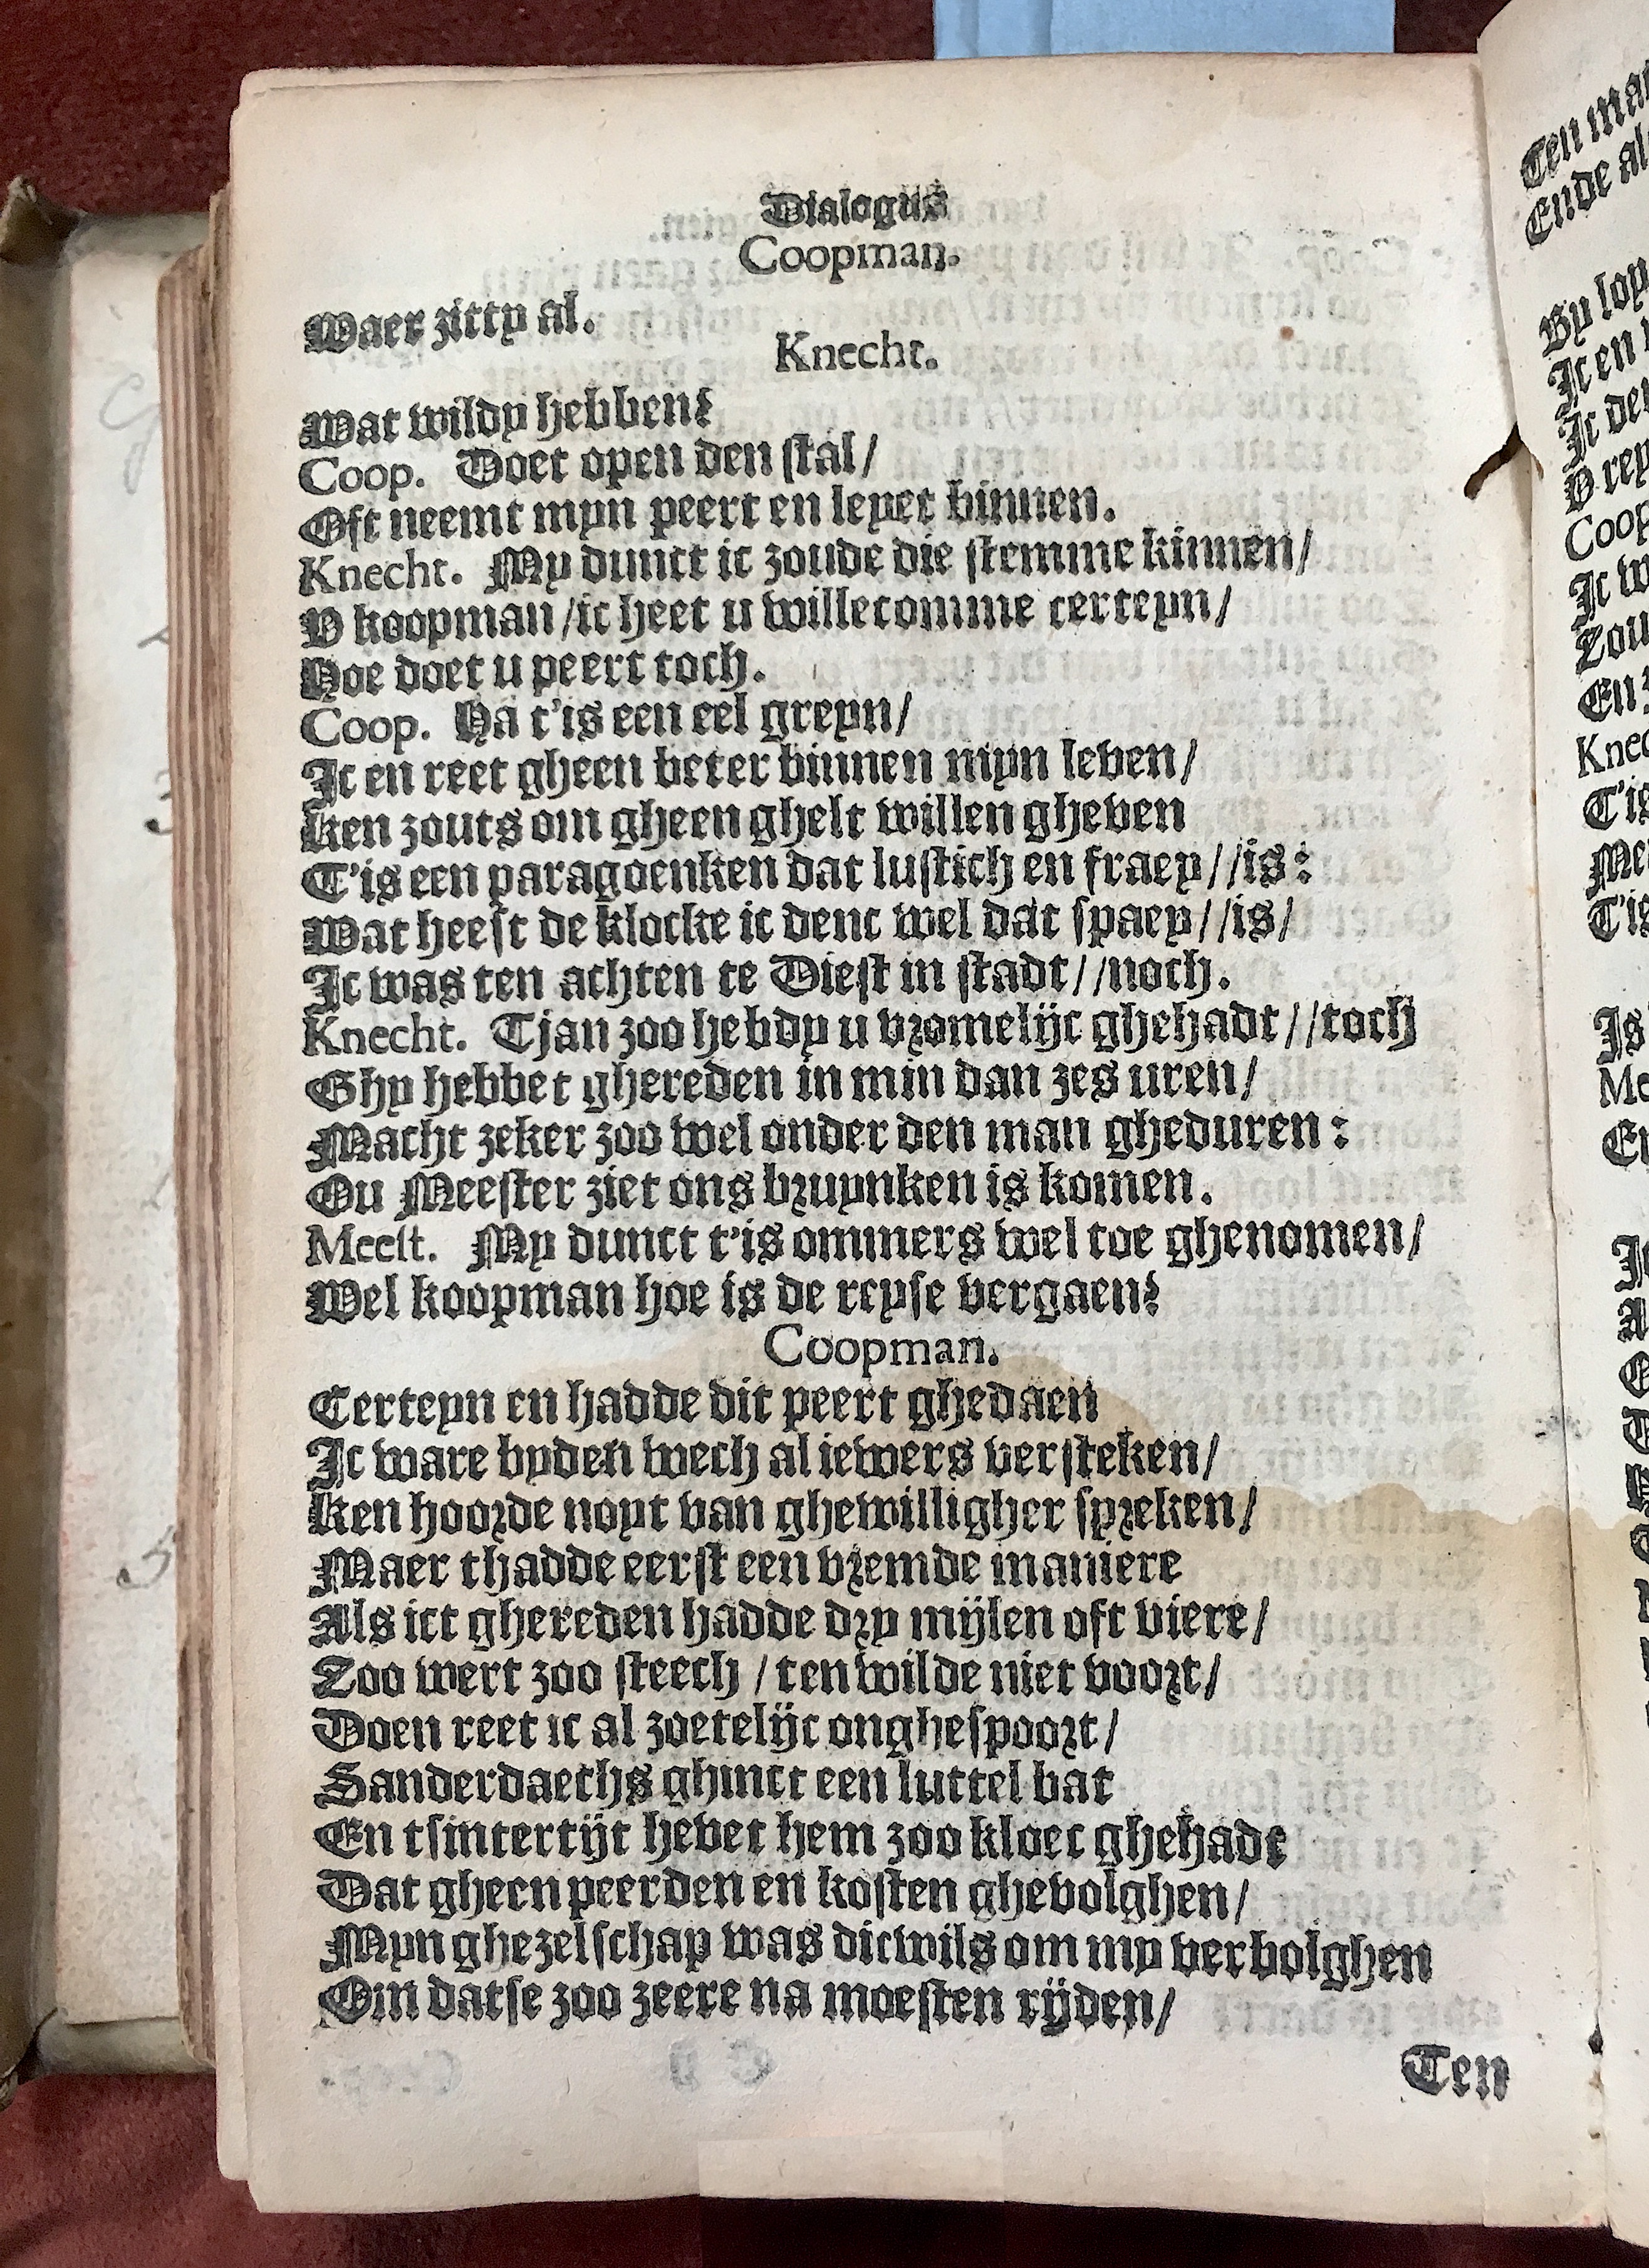 Dialogus
Coopman.
Waer zitty al.
Knecht.
Wat wildy hebben?
Coop. Doet open den stal/
Oft neemt myn peert en leyet binnen.
Knecht. My dunct ic zoude die stemme kinnen/
O koopman/ic heet u willecomme certeyn/
Hoe doet u peert toch.
Coop. Ha t'is een eel greyn/
Ic en reet gheen beter binnen myn leven/
Ken zouts om gheen ghelt willen gheven
T'is een paragoenken dat lustich en fraey//is:
Wat heeft de klocke ic denc wel dat spaey//is/
Ic was ten achten te Diest in stadt//noch.
Knecht. Tjan zoo hebdy u vromelijc ghehadt//toch
Ghy hebbet ghereden in min dan zes uren/
Macht zeker zoo wel onder den man gheduren:
Ou Meester ziet ons bruynken is komen.
Meest. My dunct t'is ommers wel toe ghenomen/
Wel koopman hoe is de reyse vergaen?
Coopman.
Certeyn en hadde dit peert ghedaen
Ic ware byden wech al iewers versteken/
Ken hoorde noyt van ghewilligher spreken/
Maer thadde eerst een vremde maniere
Als ict ghereden hadde dry mijlen oft viere/
Zoo wert zoo steech/ten wilde niet voort/
Doen reet ic al zoetelijc onghespoort/
Sanderdaechs ghinct een luttel bat
En tsintertijt hevet hem zoo kloec ghehadt
Dat gheen peerden en kosten ghevolghen/
Myn ghezelschap was dicwils om my verbolghen
Om datse zoo zeere na moesten rijden/
Ten
Ten
Ende
By
Ic en
Ic
Coop
Ic
Knec
T'is
T'is
Is